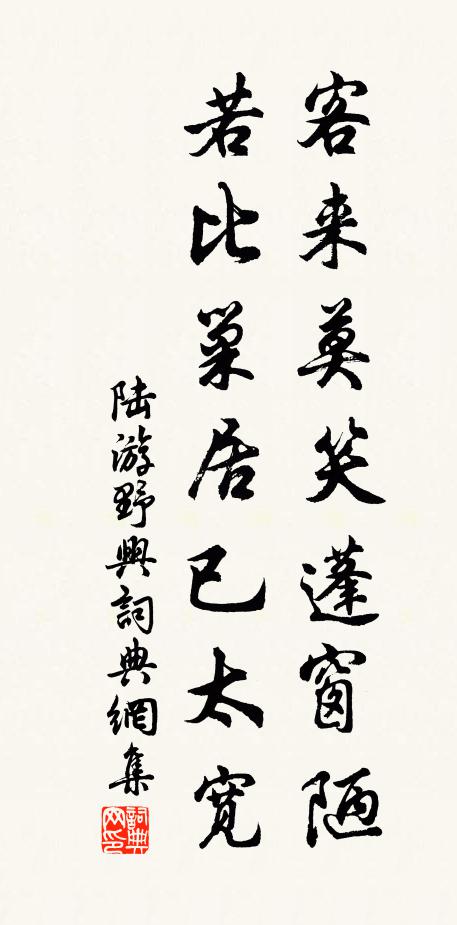 客来莫笑蓬窗陋
若比巢居已太宽
陆游野興詞典網集
詞典网印